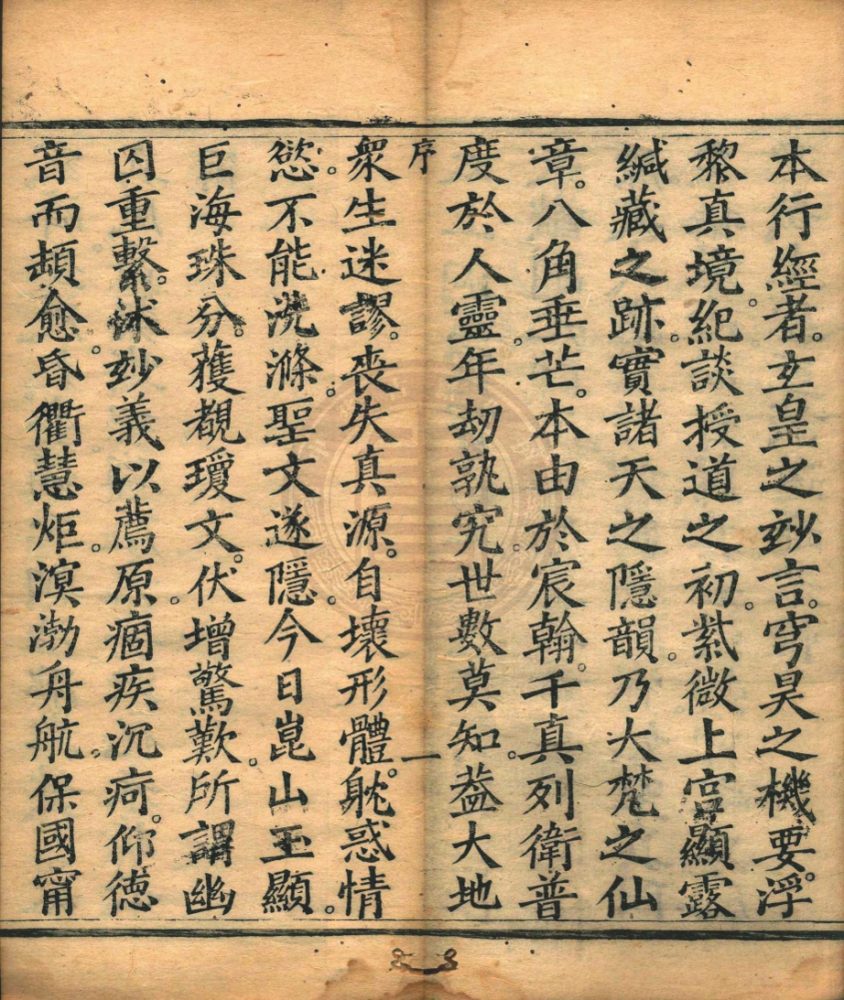 本行經者。玄皇之玅言。穹昊之機要。浮
黎真境。紀談授道之初。紫微上宮。顯露
緘藏之跡。實諸天之隱韻。乃大梵之仙
章。八角垂芒。本由於宸翰。千真列衛。普
度於人靈。年劫孰究。世數莫知。葢大地
序
一
衆生迷謬。喪失真源。自壞形體。躭惑情
慾。不能洗滌。聖文遂隱。今日崑山玉顯。
巨海珠分。獲覩瓊文。伏增驚歎。所謂幽
囚重繫。沭玅義以薦原。痼疾沉疴。仰德
音而頡愈。昏衢慧炬。溟渤舟航。保國甯